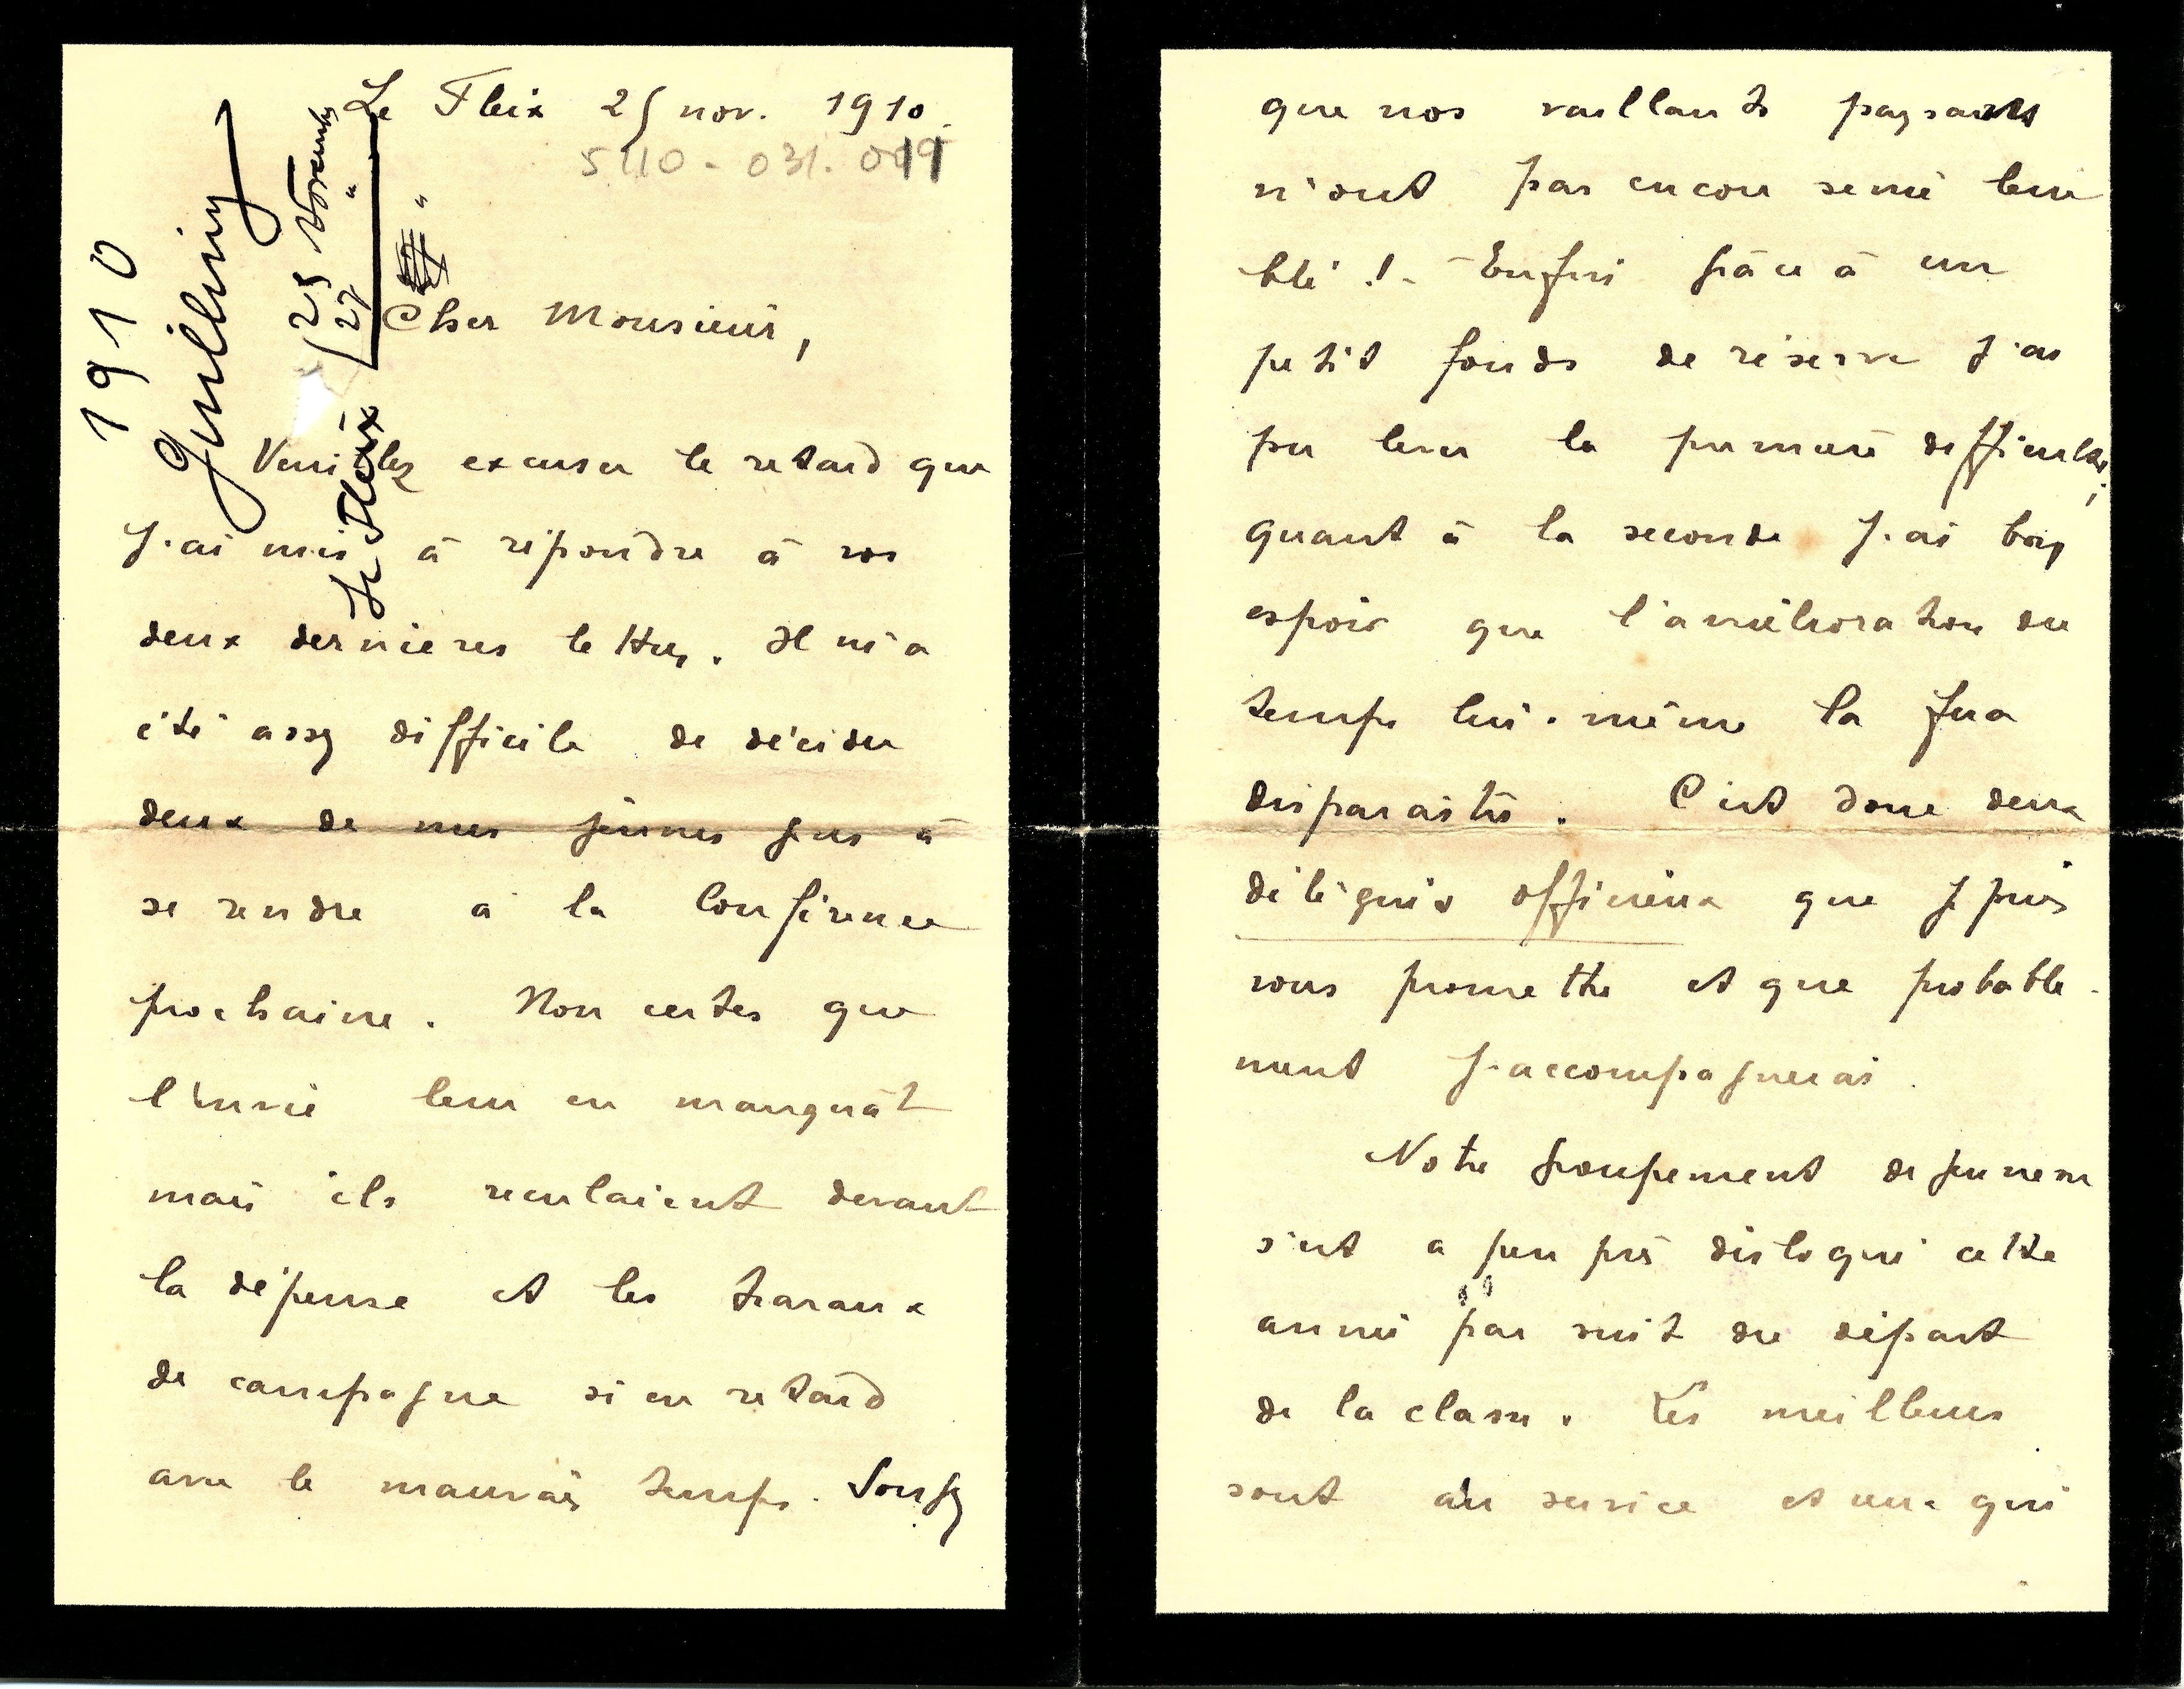 Le Fleix 25 nov. 1910.
5110 - 031. 019
1910
Guilling
25 Novembre
27 " "
Le Fleix
Cher Monsieur,
Veuillez excuser le retard que
j'ai mis à répondre à vos
deux dernières lettres. Il m'a
été assez difficile de décider
deux de mes jeunes gens à
se rendre à la Conférence
prochaine. Non certes que
l'envie leur en manquât
mais ils reculaient devant
la dépense et les travaux
de campagne si en retard
avec le mauvais temps. Songez
que nos vaillants paysans
n'ont pas encore semé leur
blé ! - Enfin grâce à un
petit fonds de réserve j'ai
pu lever la première difficulté,
quant à la seconde j'ai bon
espoir que l'amélioration du
temps lui-même la fera
disparaître. C'est donc deux
délégués officieux que je puis
vous promettre et que probable-
ment j'accompagnerai.
Notre groupement de jeunesse
s'est à peu près disloqué cette
année par suite du départ
de la classe. Les meilleurs
sont au service et ceux qui